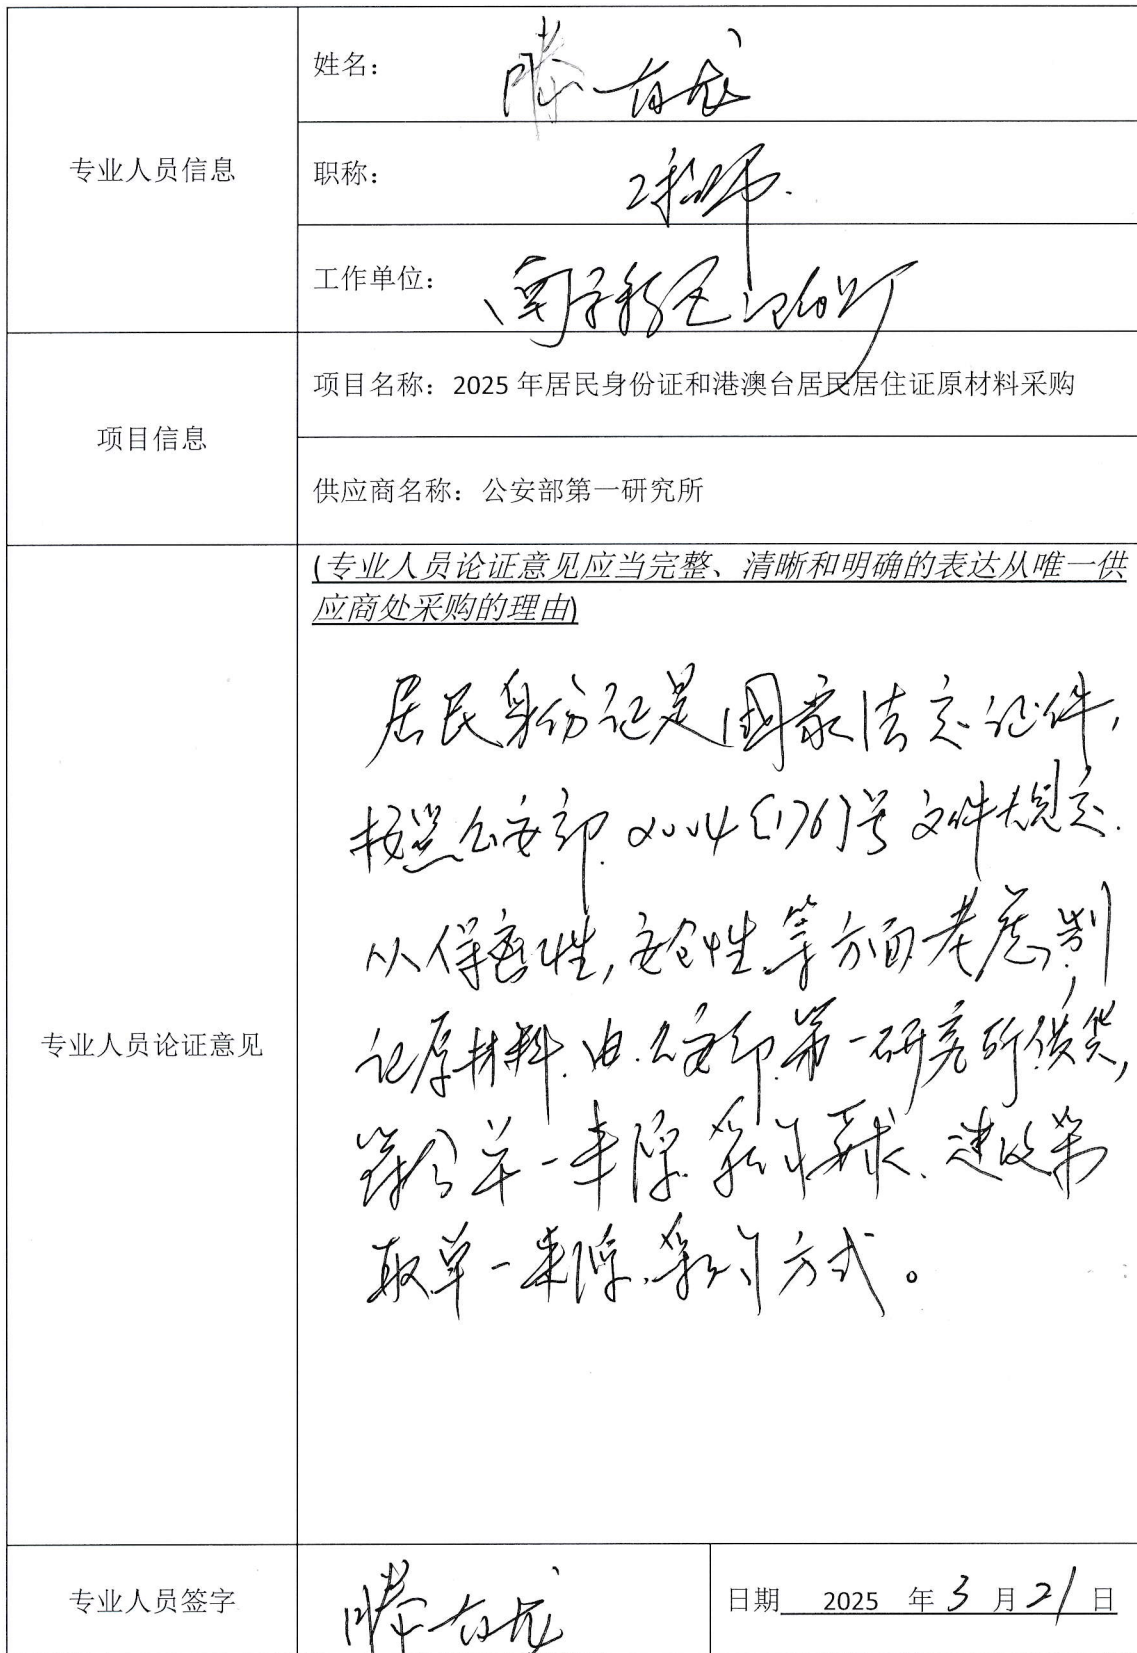 专业人员信息
姓名：
滕有龙
职称：
工程师.
工作单位：
项目信息
项目名称：2025 年居民身份证和港澳台居民居住证原材料采购
供应商名称：公安部第一研究所
专业人员论证意见
(专业人员论证意见应当完整、清晰和明确的表达从唯一供
应商处采购的理由)
居民身份证是国家法定证件,
按照公安部 2004〔176〕号文件规定.
从保密性,安全性等方面考虑,制
证原材料由公安部第一研究所供货,
符合单一来源采购要求.建议采
取单一来源采购方式。
专业人员签字
滕有龙
日期 2025 年 3 月 21 日